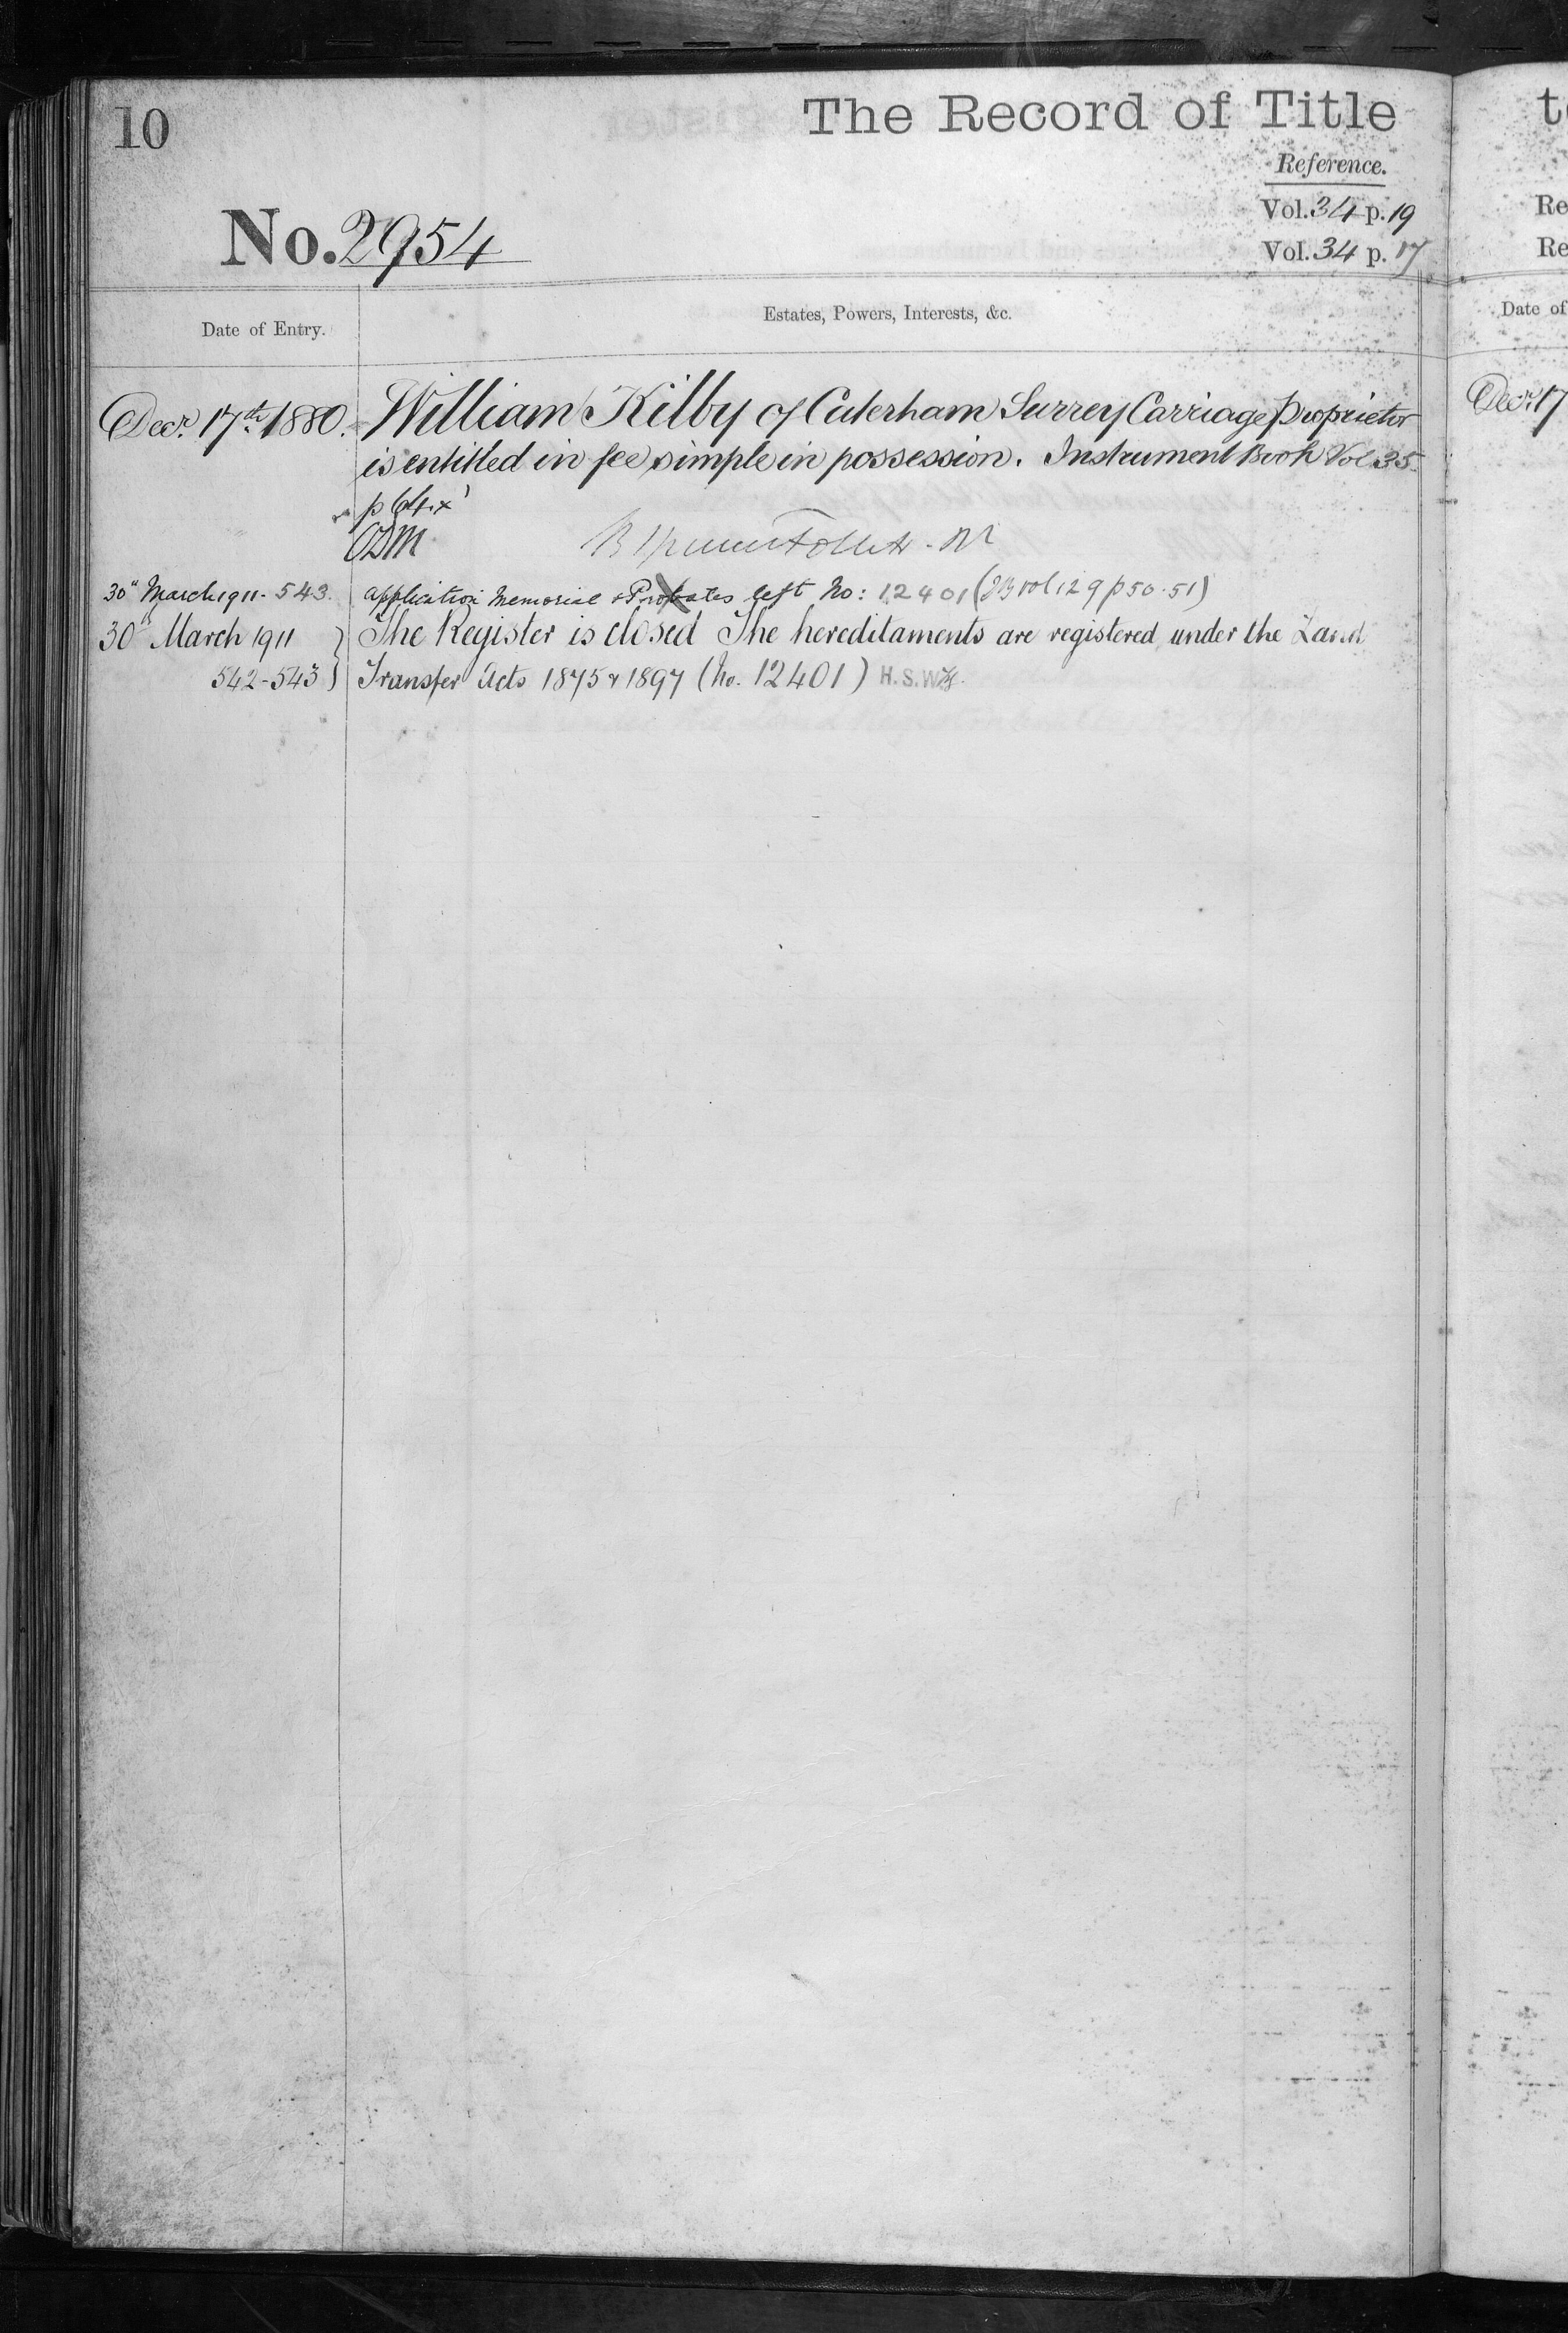 10
The Record of Title
Reference.
Vol. 34 p. 19
No. 2954
Vol. 34 p. 17
Date of Entry.
Estates, Powers, Interests, &c.
Decr. 17th 1880. William Kilby of Caterham Surrey Carriage Proprietor
is entitled in fee simple in possession. Instrument Book Vol 35
p 64.
30" March 1911 - 543. Application Memorial & Probates left No: 12401 (IB vol 129 p 50-51)
30" March 1911 The Register is closed The hereditaments are registered under the Land
542-543 Transfer Acts 1875 & 1897 (No. 12401) H.S.W.
t
Re
Re
Date of
Decr. 17